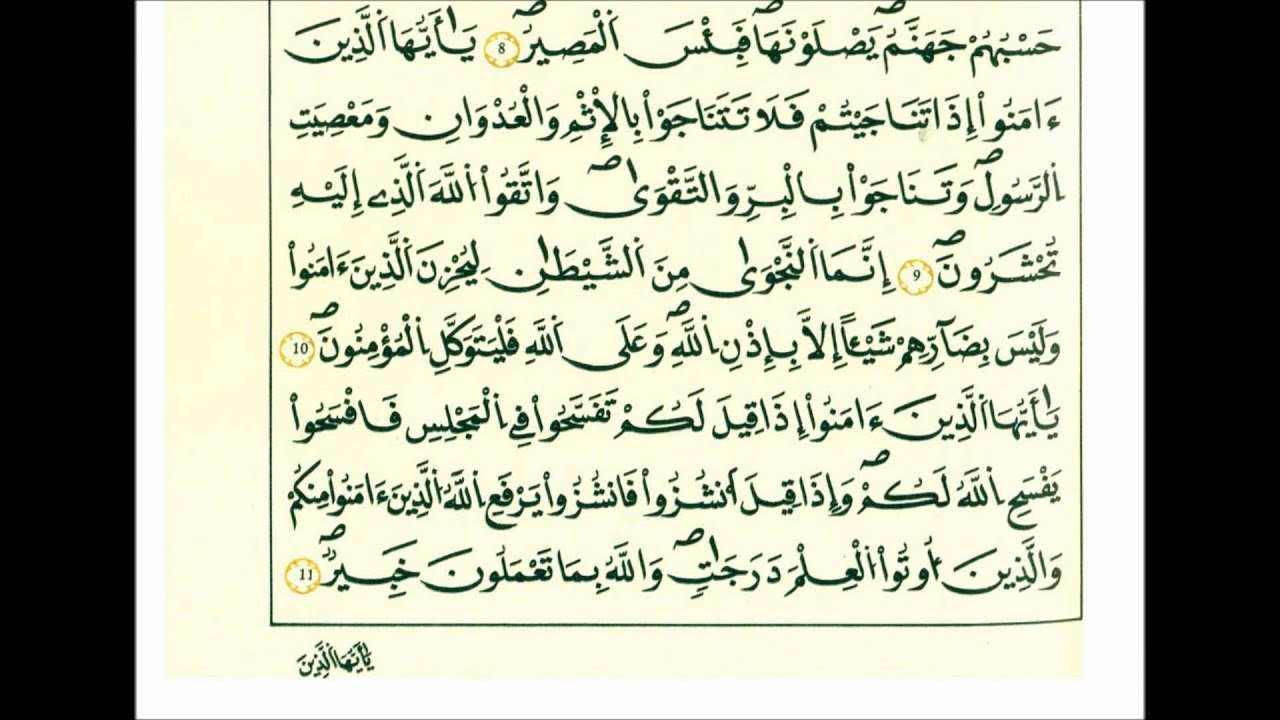 حَسْبُهُمْ جَهَنَّمُ يَصْلَوْنَهَا فَبِئْسَ اَ۬لْمَصِيرُۖ 8 يَٰأَيُّهَا اَ۬لذِينَ
ءَامَنُواْ إِذَا تَنَاجَيْتُمْ فَلَا تَتَنَاجَوْاْ بِالْإِثْمِ وَالْعُدْوَانِ وَمَعْصِيَتِ
اِ۬لرَّسُولِۖ وَتَنَاجَوْاْ بِالْبِرِّ وَالتَّقْوَىٰۖ وَاتَّقُواْ اُ۬للَّهَ اَ۬لذِے إِلَيْهِ
تُحْشَرُونَۖ 9 إِنَّمَا اَ۬لنَّجْوَىٰ مِنَ اَ۬لشَّيْطَٰنِ لِيُحْزِنَ اَ۬لذِينَ ءَامَنُواْ
وَلَيْسَ بِضَآرِّهِمْ شَيْـٔاً إِلَّا بِإِذْنِ اِ۬للَّهِۖ وَعَلَى اَ۬للَّهِ فَلْيَتَوَكَّلِ اِ۬لْمُؤْمِنُونَۖ 10
يَٰأَيُّهَا اَ۬لذِينَ ءَامَنُواْ إِذَا قِيلَ لَكُمْ تَفَسَّحُواْ فِے اِ۬لْمَجْلِسِ فَافْسَحُواْ
يَفْسَحِ اِ۬للَّهُ لَكُمْۖ وَإِذَا قِيلَ اَ۟نشُزُواْ فَانشُزُواْ يَرْفَعِ اِ۬للَّهُ اُ۬لذِينَ ءَامَنُواْ مِنكُمْ
وَالذِينَ أُوتُواْ اُ۬لْعِلْمَ دَرَجَٰتٖۖ وَاللَّهُ بِمَا تَعْمَلُونَ خَبِيرٞۖ 11
يَٰأَيُّهَا اَ۬لذِينَ